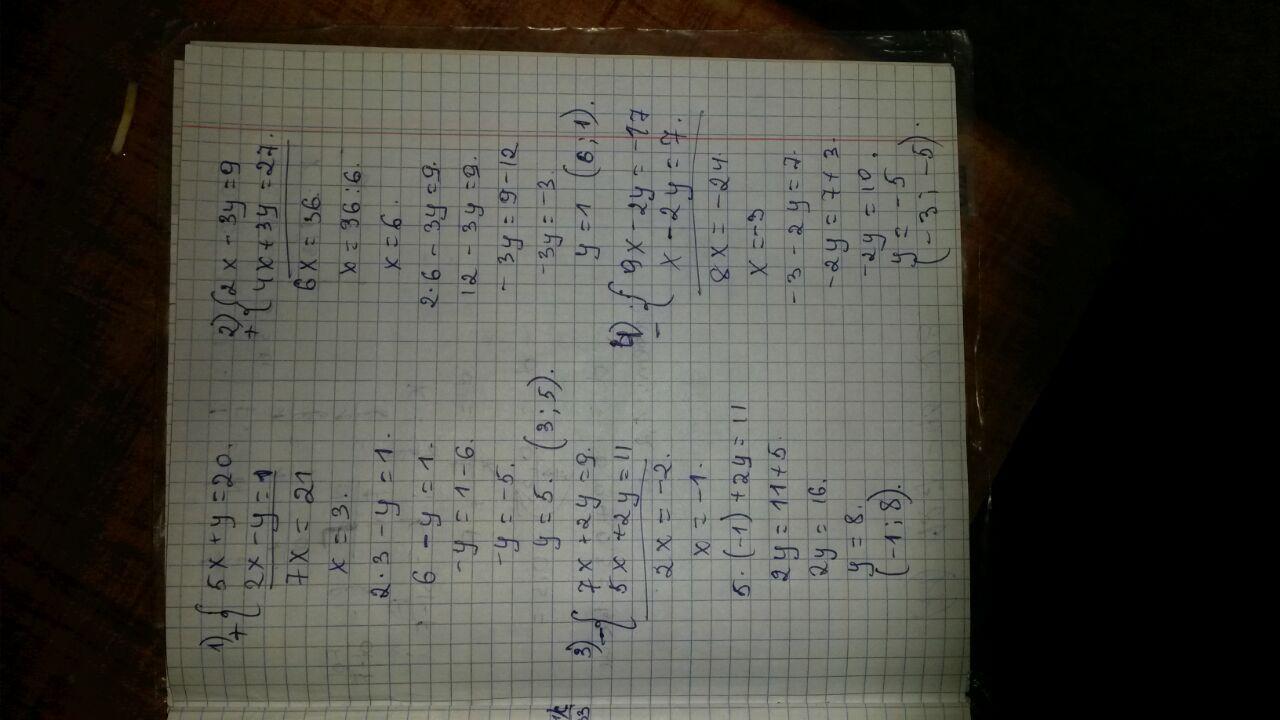 1) + { 5x + y = 20.
2x - y = 1
7x = 21
x = 3.
2·3 - y = 1.
6 - y = 1.
-y = 1 - 6.
-y = -5.
y = 5. (3; 5).
2) + { 2x - 3y = 9
4x + 3y = 27.
6x = 36.
x = 36:6.
x = 6.
2·6 - 3y = 9.
12 - 3y = 9.
-3y = 9 - 12
-3y = -3.
y = 1 (6; 1).
3) - { 7x + 2y = 9.
5x + 2y = 11
2x = -2.
x = -1.
5·(-1) + 2y = 11
2y = 11 + 5.
2y = 16.
y = 8.
(-1; 8).
4) - { 9x - 2y = -17
x - 2y = 7.
8x = -24.
x = -3
-3 - 2y = 7.
-2y = 7 + 3.
-2y = 10.
y = -5
(-3; -5).